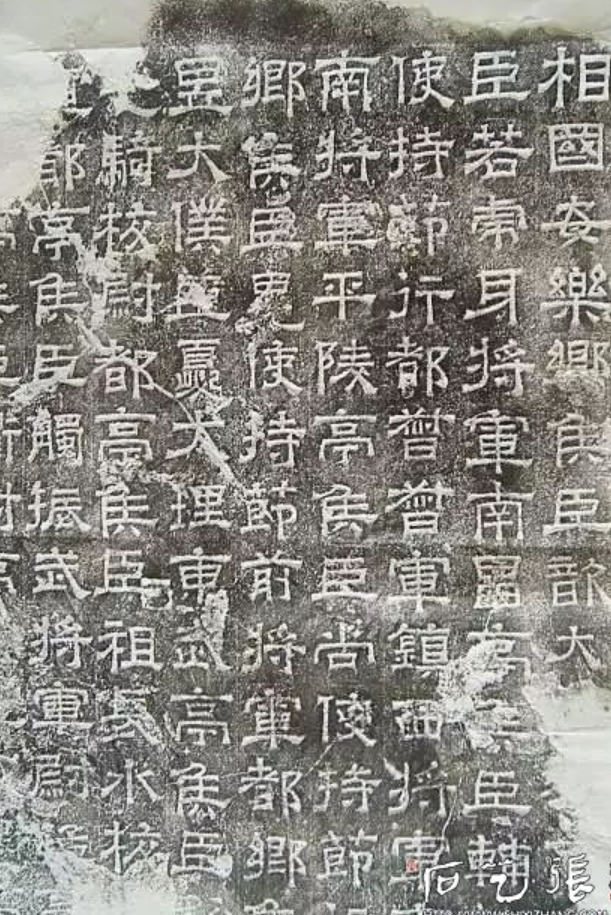 相國安樂鄉侯臣歆大
臣若虎牙將軍南昌亭侯臣輔
使持節行都督督軍鎮西將軍
南將軍平陵亭侯臣尚使持節
鄉侯臣晃使持節前將軍都鄉
昱大僕臣夔大理東武亭侯臣
騎校尉都亭侯臣祖長水校
都亭侯臣觸振武將軍尉
石艺張